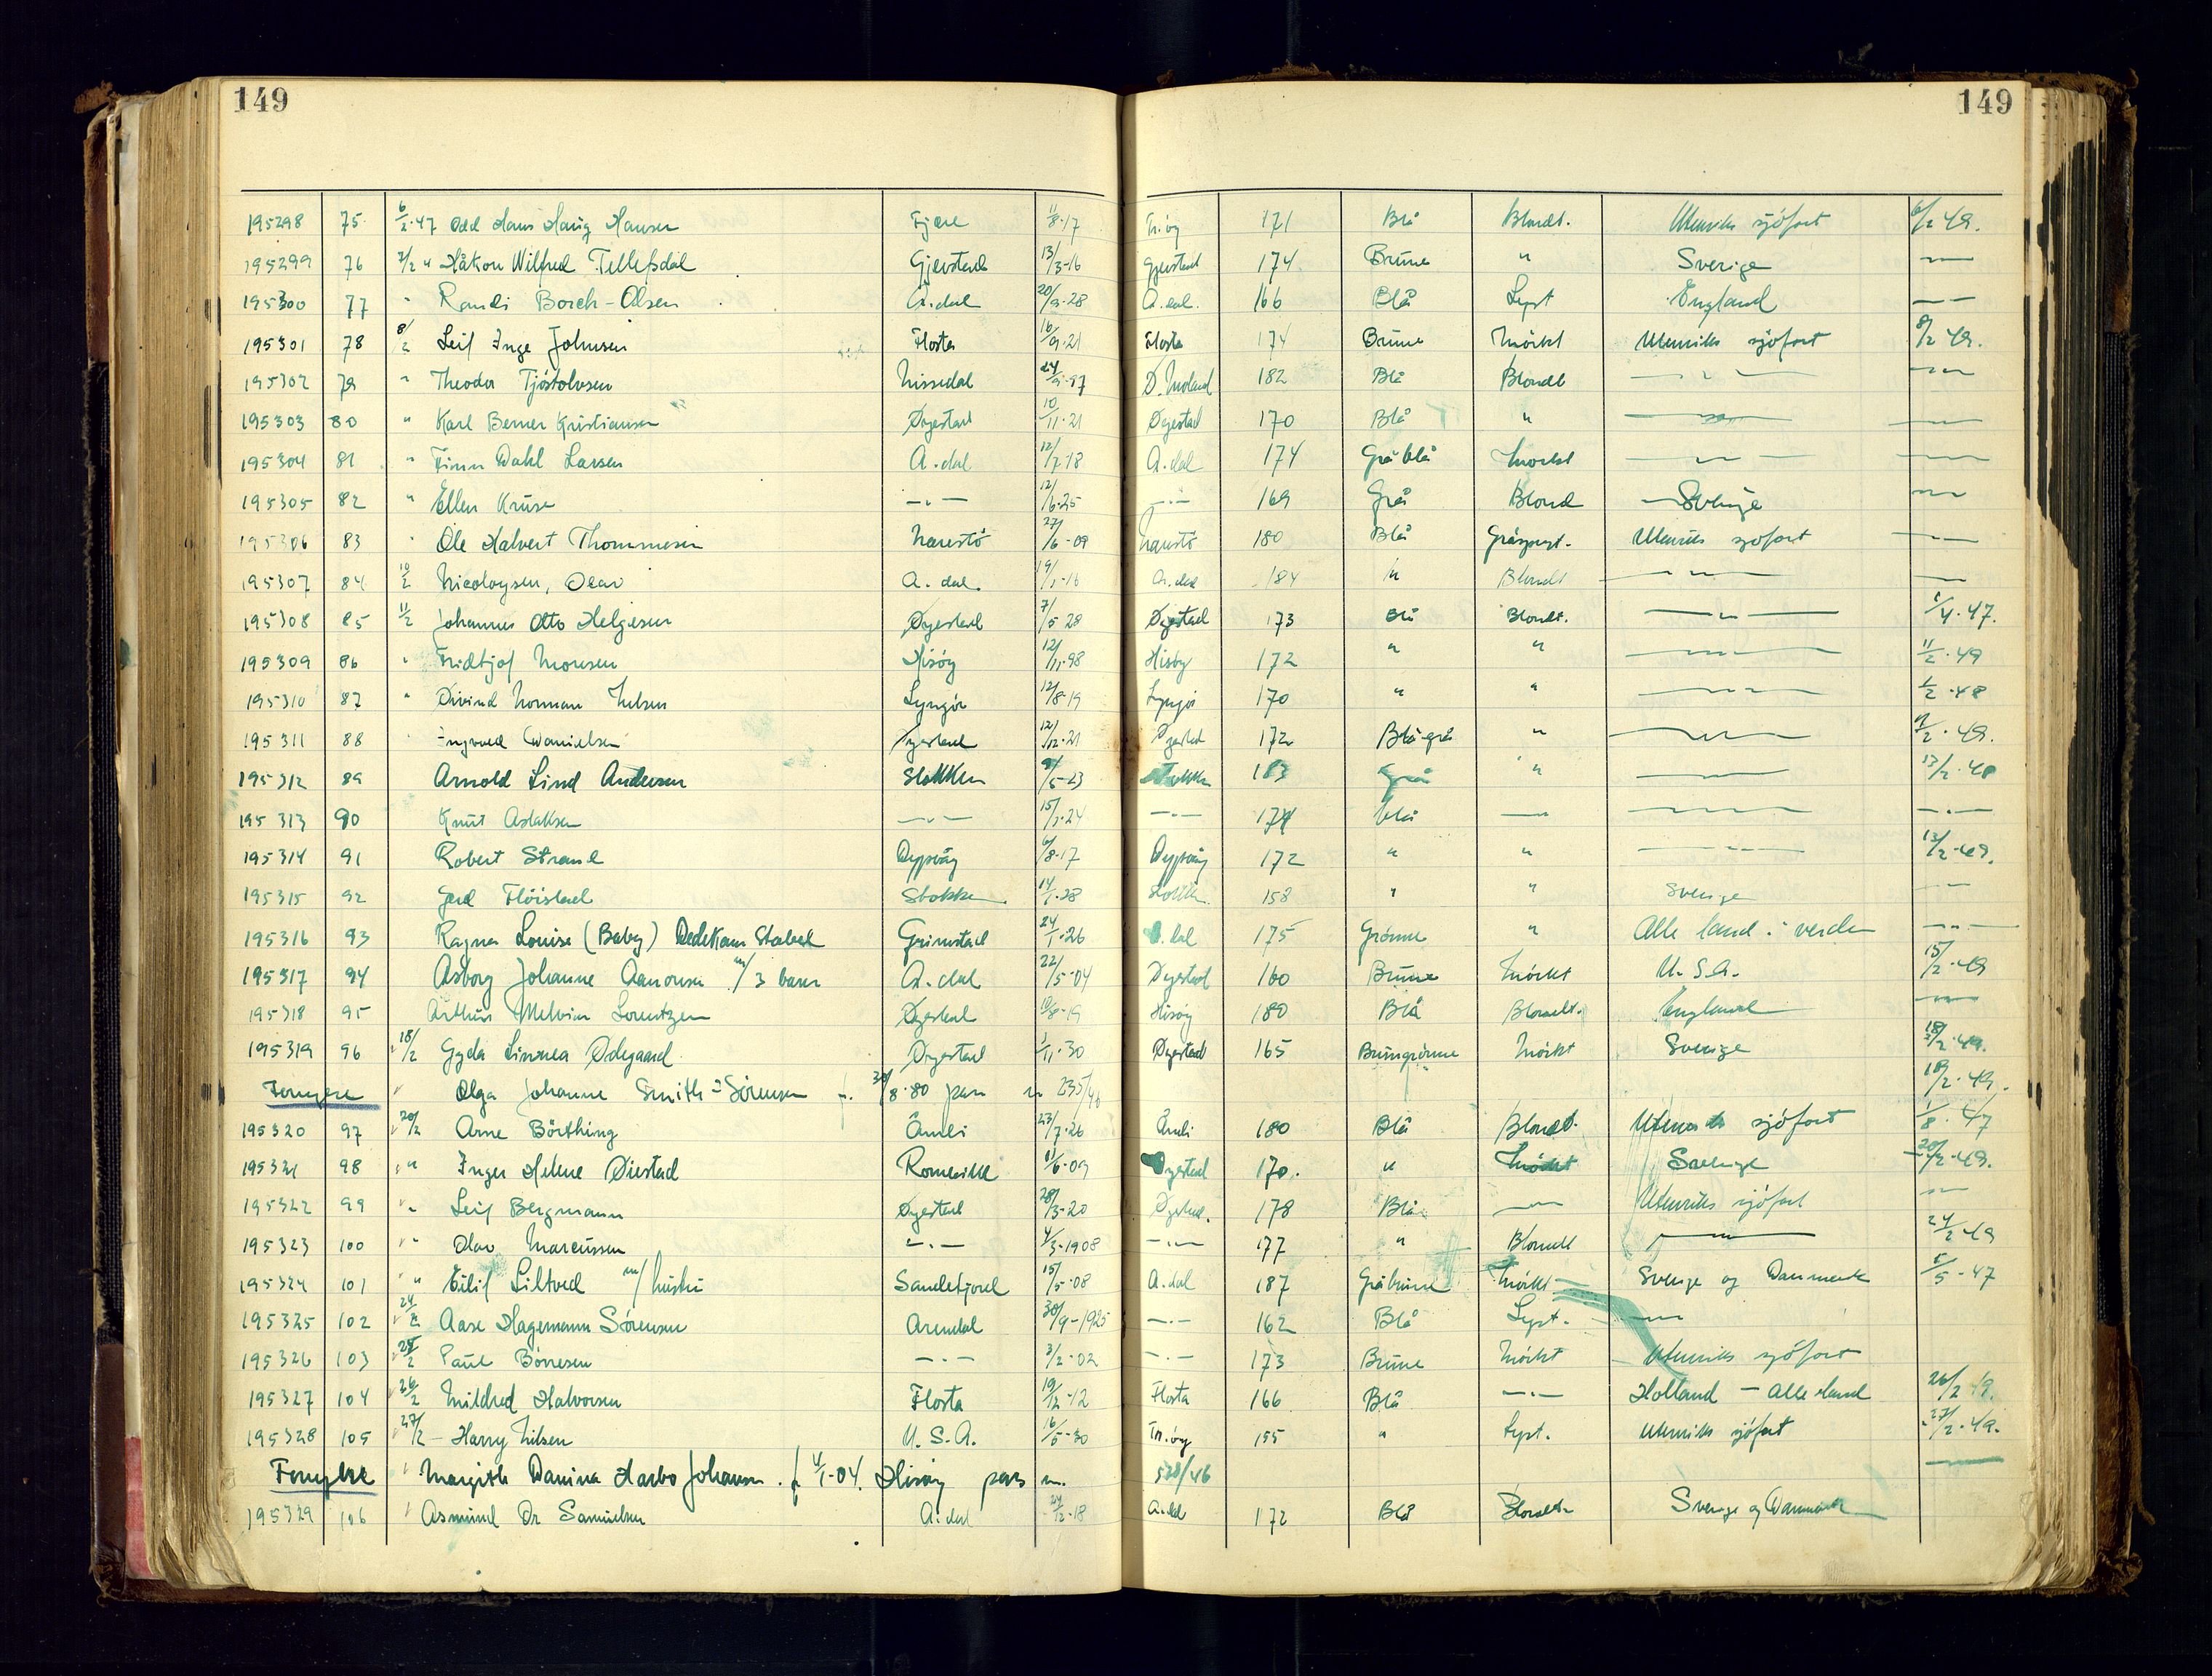 149 149
195298 75 6/2.47 Odd Hans Haug Hansen Fjære 11/8.17 Tr.öy 171 Blå Blondt. Utenriks sjöfart 6/2 49.
195299 76 7/2 " Håkon Wilfred Tellefsdal Gjerstad 13/3-16 Gjerstad 174 Brune " Sverige —"—
195300 77 " Randi Borch-Olsen A.dal 20/9.28 A.dal. 166 Blå Lyst England — —
195301 78 8/2 Leif Inge Johnsen Flosta 16/9.21 Flosta 174 Brune Mörkt Utenriks sjöfart 8/2 49.
195302 79 " Theodor Tjöstolvsen Nissedal 24/9.97 Ö.Moland 182 Blå Blondt — " — —"—
195303 80 " Karl Berner Kristiansen Øyestad 10/11.21 Øyestad 170 Blå " —"— —"—
195304 81 " Finn Dahl Larsen A.dal 12/7.18 A.dal 174 Gråblå Mörkt — " — —"—
195305 82 " Ellen Kruse —"— 12/6.25 —"— 169 Grå Blond Sverige —"—
195306 83 " Ole Halvert Thommesen Narestö 27/6-09 Narestö 180 Blå Gråsprgt. Utenriks sjöfart —"—
195307 84 10/2 Nicolaysen, Olav A.dal. 19/1-16 A.dal 184 " Blondt — " — —
195308 85 11/2 Johannes Otto Helgesen Øyestad 7/5 28 Øyestad 173 Blå Blondt. — " — 1/4.47.
195309 86 " Fridtjof Monsen Hisöy 12/11.98 Hisöy 172 " " — " — 11/2.49
195310 87 " Øivind Norman Nilsen Lyngör 12/8.19 Lyngör 170 " " — " — 1/2.48
195311 88 " Ingvald Danielsen Øyestad 12/12.21 Øyestad 172 Blå-grå " — " — /2.49.
195312 89 Arnold Lind Andersen Stokken /5-23 Stokken 183 Grå " — " — 13/2.48
195313 90 Knut Aslaksen —"— 15/1.24 —"— 174 blå — — " — —"—
195314 91 Robert Strand Dypvåg 6/8.17 Dypvåg 172 " " — " — 13/2.49.
195315 92 Gerd Flöistad Stokken 14/1.28 Stokken 158 " " Sverige —"—
195316 93 Ragna Louise (Baby) Dedekam Stabel Grimstad 24/1.26 A.dal 175 Grönne " Alle land i verden —"—
195317 94 Asborg Johanne Aanonsen m/3 barn A.dal 22/5-04 Øyestad 160 Brune Mörkt U.S.A. 15/2-49
195318 95 Arthur Melvin Lorentzen Øyestad 10/8-19 Hisöy 180 Blå Blondt. England —"—
195319 96 18/2 Gyda Linnea Ødegaard Øyestad 1/11.30 Øyestad 165 Brungrönne Mörkt Sverige 18/2.49.
Fornyere " Olga Johanne Smith-Sörensen f. 30/8.80 pass nr 235/46 18/2.49.
195320 97 20/2 Arne Börthing Åmli 23/7.26 Åmli 180 Blå Blondt. Utenriks sjöfart 1/8.47
195321 98 " Inger Helene Øiestad Romerike 11/6-09 Øyestad 170. " Mörkt Sverige 20/2.49.
195322 99 " Leif Bergmann Øyestad 28/3-20 Øyestad. 178 Blå —"— Utenriks sjöfart —"—
195323 100 " Olav Marcussen —"— 4/3-1908 —"— 177 " Blondt —"— 24/2.49
195324 101 " Eilif Liltved m/hustru Sandefjord 15/5-08 A.dal 187 Gråbrune Mörkt Sverige og Danmark 5/5-47
195325 102 24/2 Aase Hagemann Sörensen Arendal 30/9-1925 —"— 162 Blå Lyst. —"—
195326 103 25/2 Paul Börresen —"— 3/2-02 —"— 173 Brune Mörkt Utenriks sjöfart
195327 104 26/2 Mildred Halvorsen Flosta 19/12-12 Flosta 166 Blå —"— Holland — Alle land 26/2 49.
195328 105 27/2 — Harry Nilsen U.S.A. 16/5-30 Tr.öy 155 " Lyst. Utenriks sjöfart 27/2.49.
Fornyelse " Margith Danina Aarbo Johansen. f 4/1-04. Hisöy pass nr. 528/46 —
195329 106 " Asmund Dr Samuelsen A.dal 24/2-18 A.dal 172 Blå Blondt Sverige og Danmark